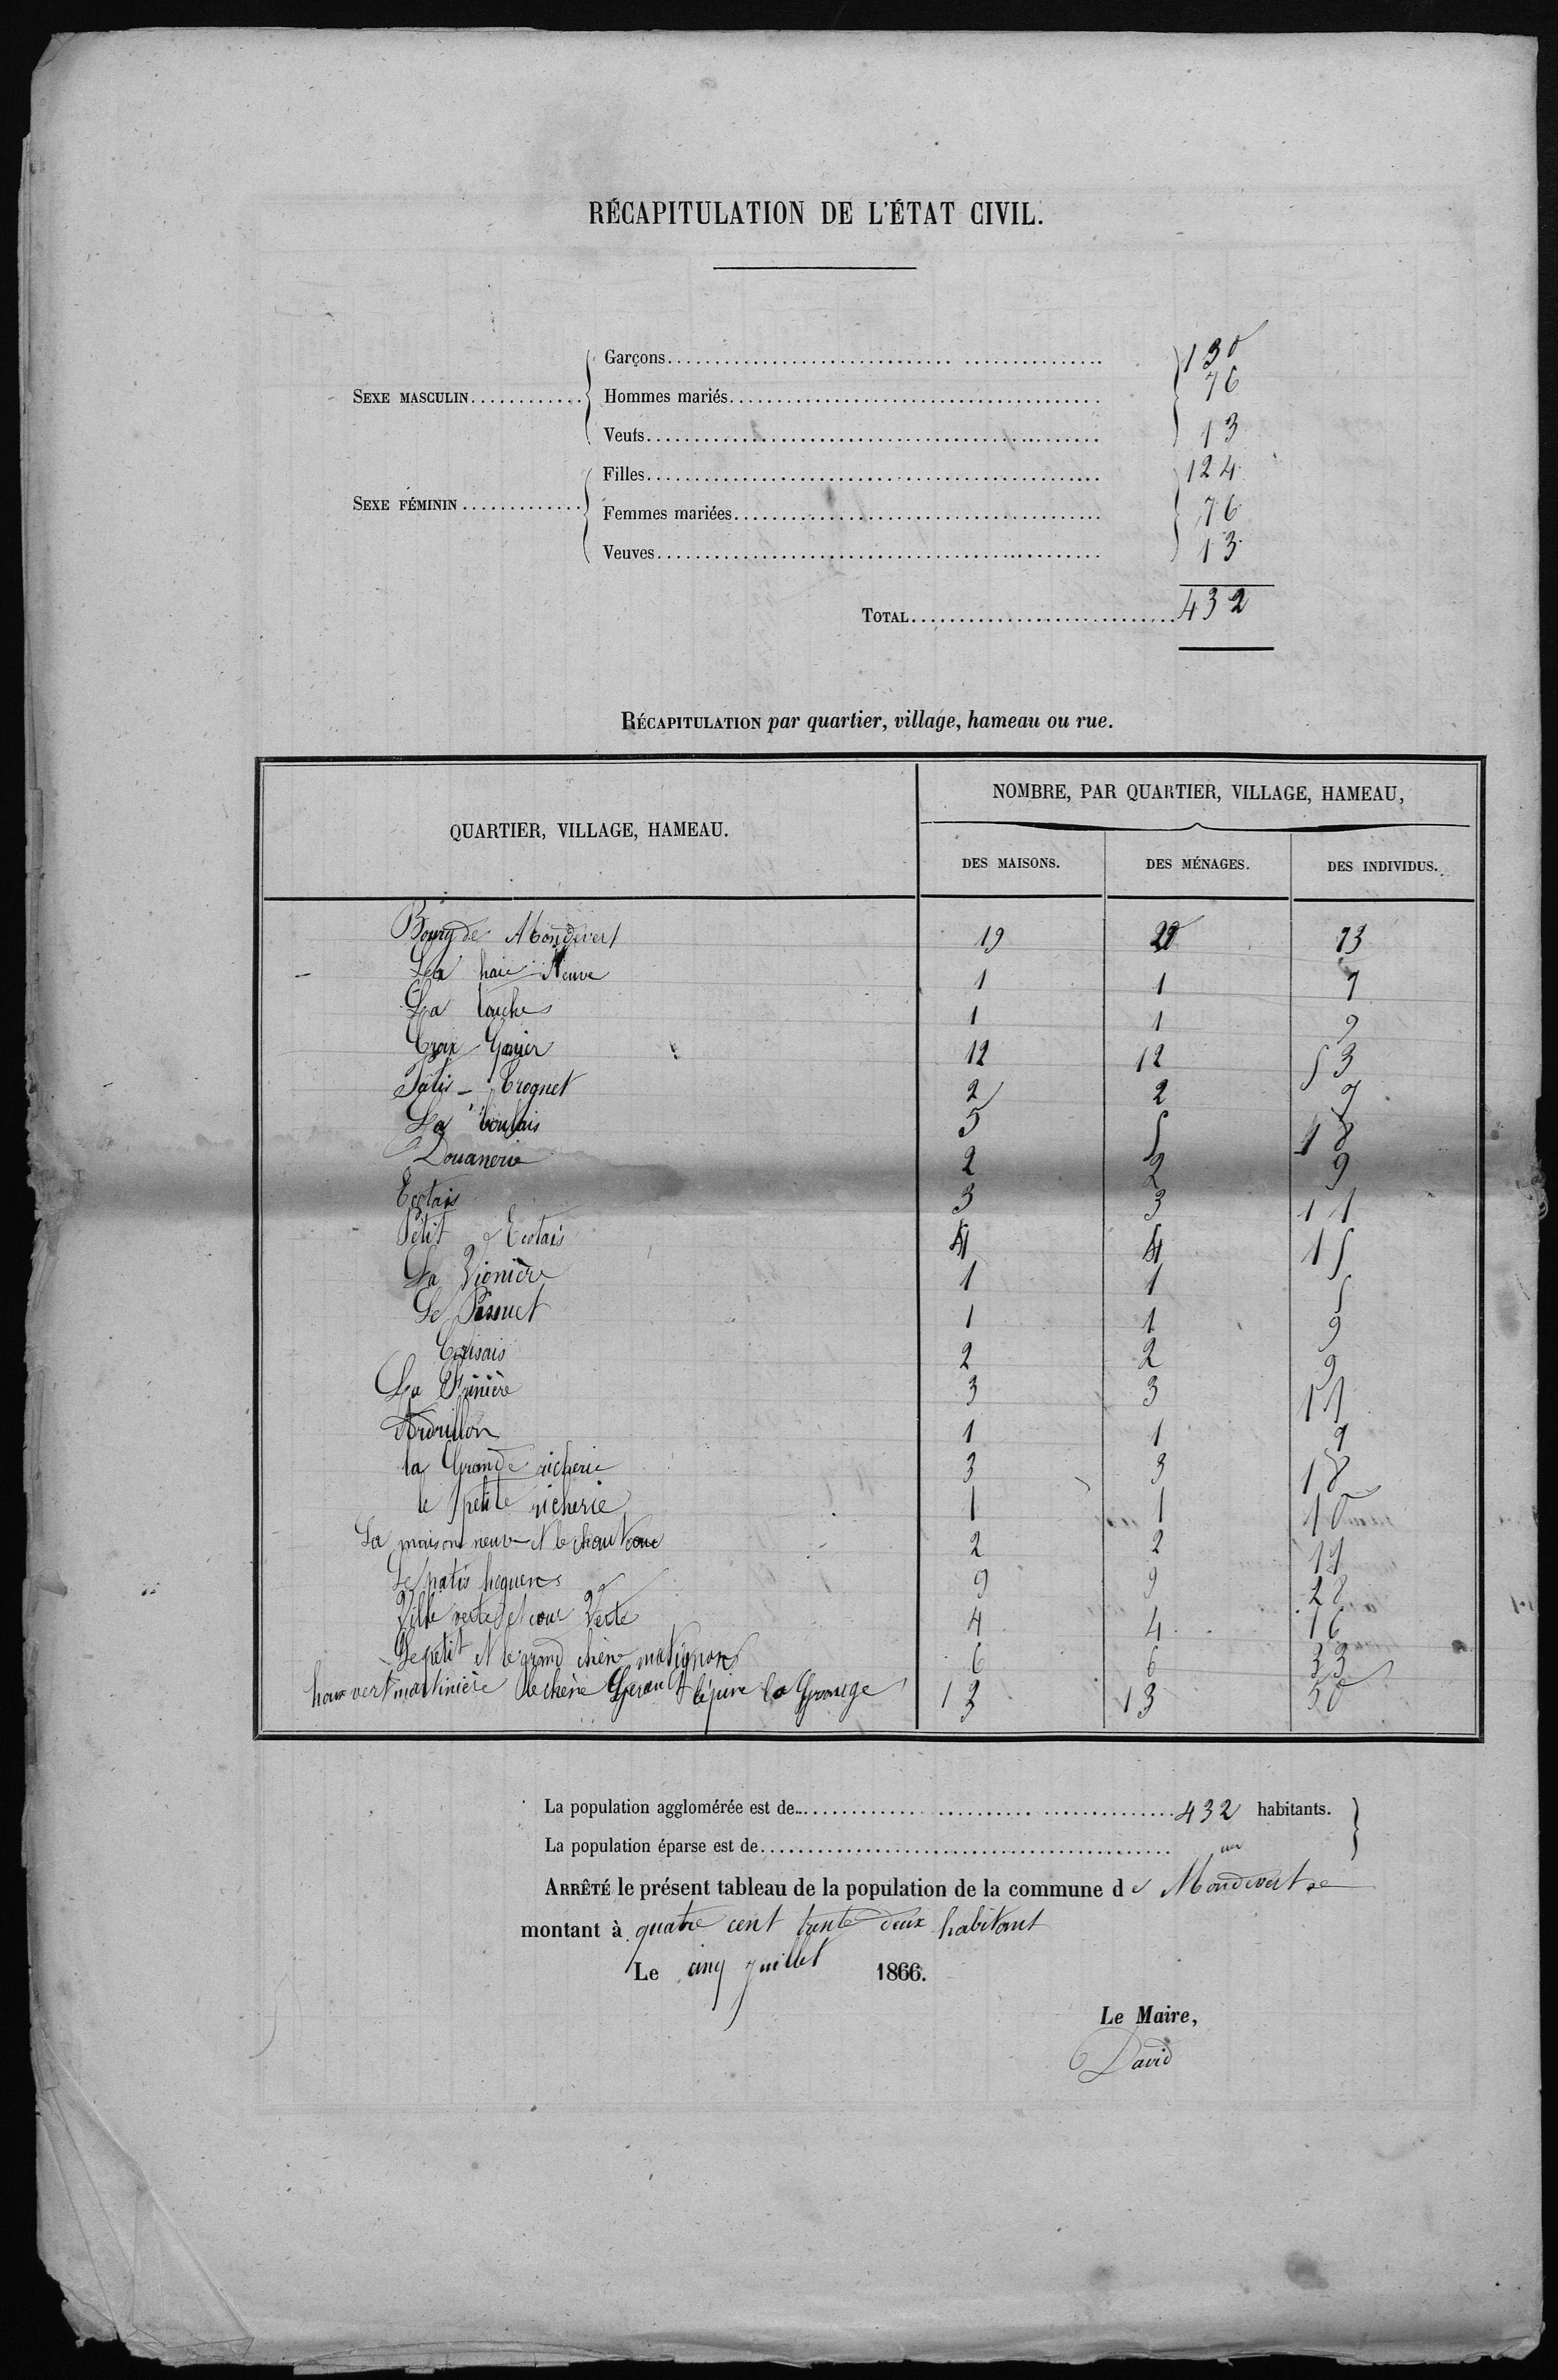 RÉCAPITULATION DE L'ÉTAT CIVIL.
SEXE MASCULIN............ Garçons.............................. 130
Hommes mariés.............................. 76
Veufs.............................. 13
SEXE FÉMININ............ Filles.............................. 124
Femmes mariées.............................. 76
Veuves.............................. 13
TOTAL.............................. 432
RÉCAPITULATION par quartier, village, hameau ou rue.
QUARTIER, VILLAGE, HAMEAU. NOMBRE, PAR QUARTIER, VILLAGE, HAMEAU,
DES MAISONS. DES MÉNAGES. DES INDIVIDUS.
Bourg de Mondevert 19
La haie Neuve 1 1
La touche 1 1 9
Croix Garier 12 12 53
Pâtis - Crognet 2 2
La boulais 5 5 18
Douanerie 2 2 9
Ecotais 3 3 11
Petit Ecotais 4 4 15
La Vionière 1 1 5
Le 1 1 9
2 2 9
La 3 3
Ardrillon 1 1
la Grande richerie 3 3 18
le petite richerie 1 1 10
La maison neuve et le 2 2
Le patis 9 9 28
Ville verte et cour Verte 4 4 16
Le petit et le grand chêne matignon 6 6 33
houx vert martinière le chêne l'épine la Grange 13 13 50
La population agglomérée est de.............................. 432 habitants.
La population éparse est de..............................
ARRÊTÉ le présent tableau de la population de la commune de Mondevert se
montant à quatre cent trente deux habitant
Le cinq juillet 1866.
Le Maire,
David